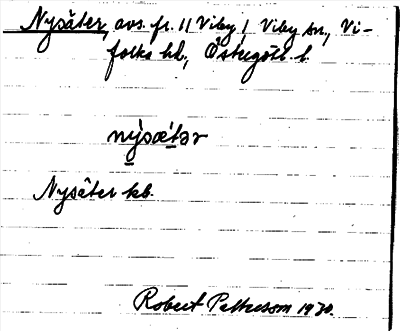 Nysäter, avs. fr. 11 Viby 1 Viby sn, Vi-
folka hd, Östergötl. l.
nỳsæ̀tər
Nysäter kb.
Robert Pettersson 1930.